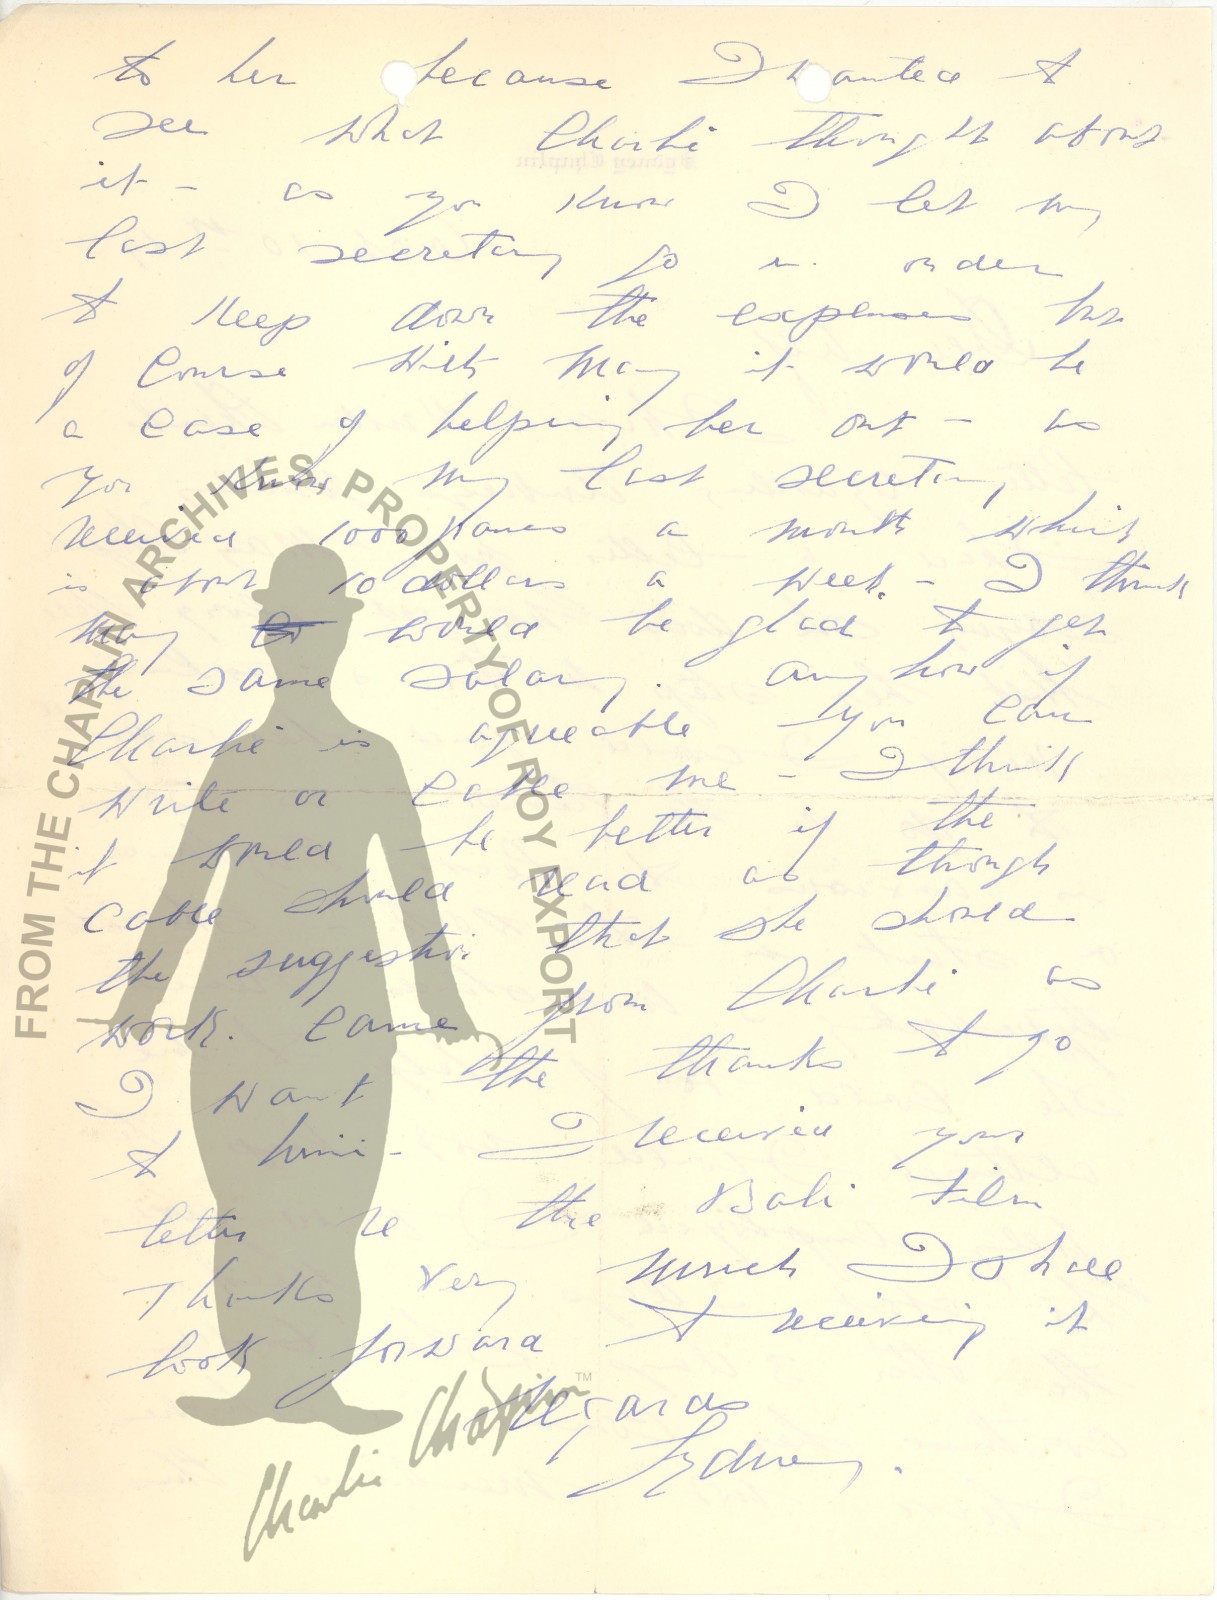 to her because I wanted to
see what Charlie thought about
it - as you know I let my
last secretary go in order
to keep down the expenses but
of course with May it would be
a case of helping her out - as
you know my last secretary
received 1000 francs a month which
is about 10 dollars a week. - I think
May would be glad to get
the same salary. anyhow if
Charlie is agreeable you can
write or cable me - I think
it would be better if the
cable should read as though
the suggestion that she should
work. came from Charlie as
I want the thanks to go
to him - I received your
letter re the Bali Film
Thanks very much I shall
look forward to receiving it
Regards
Sydney.
FROM THE CHAPLIN ARCHIVES, PROPERTY OF ROY EXPORT
Charlie Chaplin TM
Sydney Chaplin